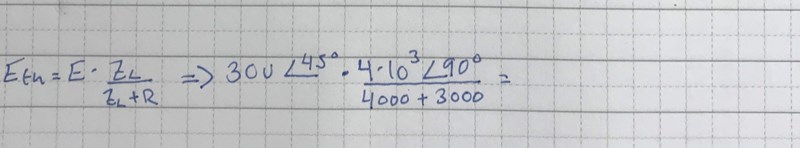 Eth = E · Z_L / (Z_L + R) => 30V ∠45° · 4·10³ ∠90° / (4000 + 3000) =